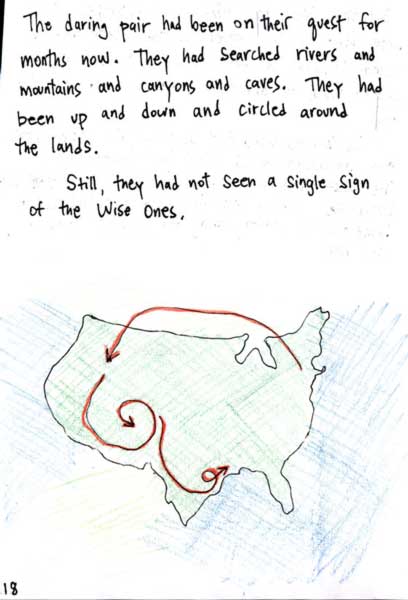 The daring pair had been on their quest for
months now. They had searched rivers and
mountains and canyons and caves. They had
been up and down and circled around
the lands.
Still, they had not seen a single sign
of the Wise Ones.
18